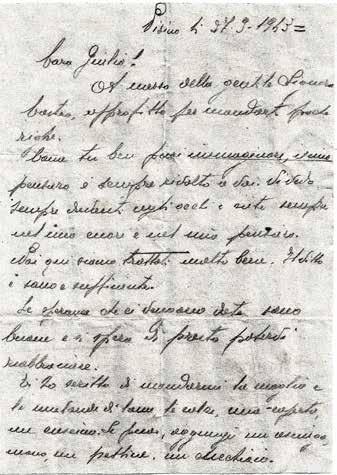 Pisino li 27-9-1943=
Cara Giulia!
A mezzo della gentile Signora
approfitto per mandarti poche
righe.
Come tu ben puoi immaginare, il mio
pensiero è sempre rivolto a voi. Vi vedo
sempre davanti agli occhi e siete sempre
nel mio cuore e nel mio pensiero.
Noi qui siamo trattati molto bene. Il vitto
è sano e sufficiente.
Le speranze che ci vengono date sono
buone e si spera di presto poterci
riabbracciare.
Ti ho scritto di mandarmi la maglia e
le mutande di lana, le calze, una coperta,
un cuscino. Se puoi, aggiungi un asciuga-
mano, un pettine, un